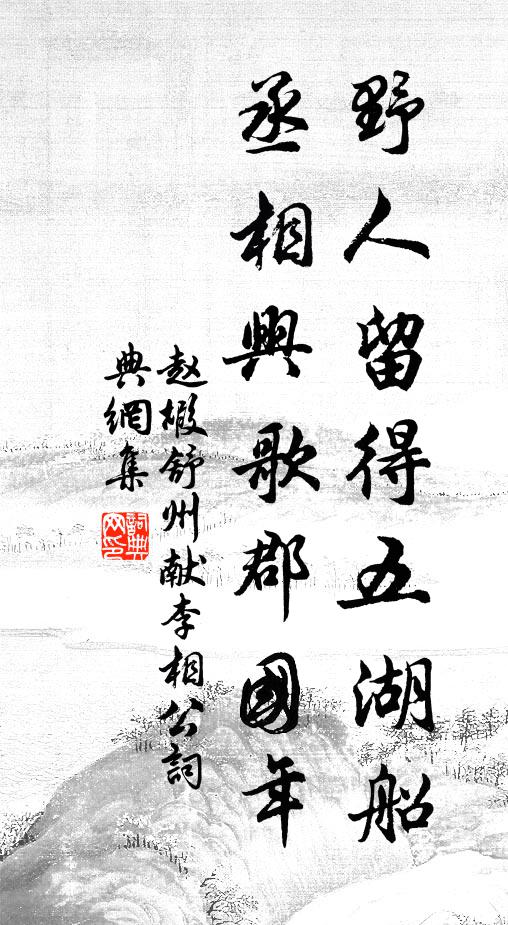 野人留得五湖船
丞相興歌郡國年
赵嘏舒州献李相公詞
典網集
詞典